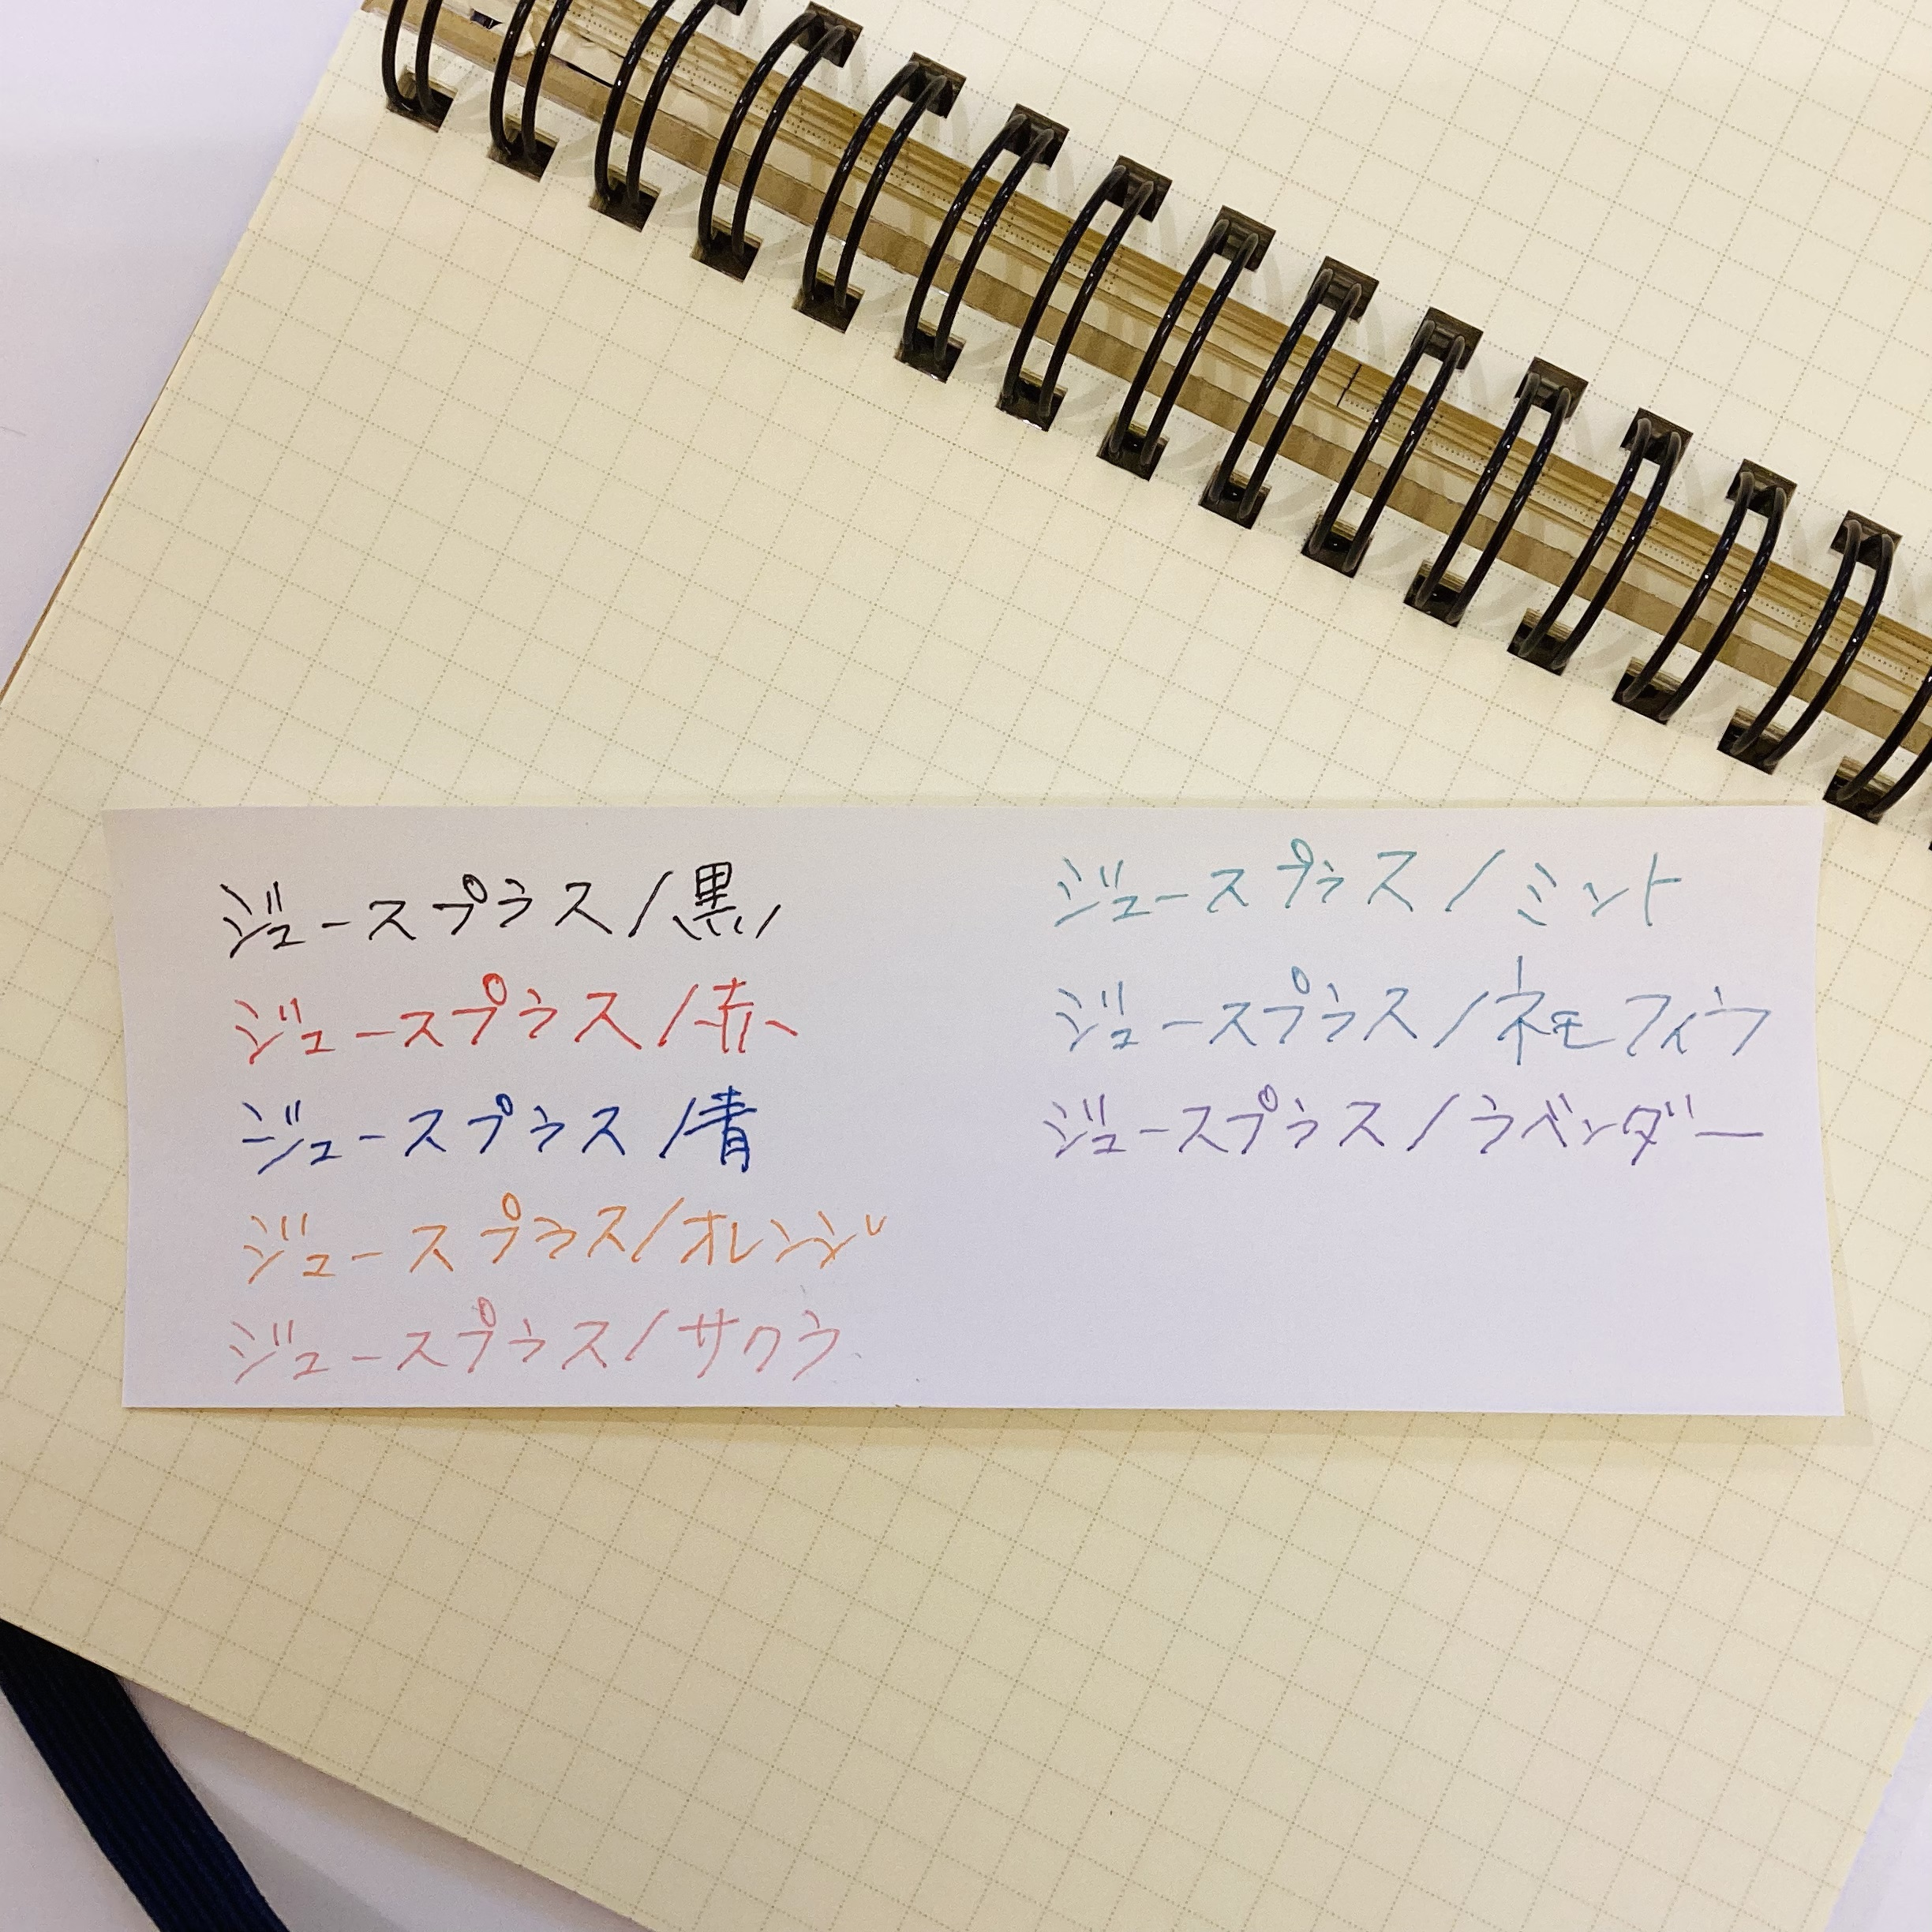 ジュースプラス/黒
ジュースプラス/赤
ジュースプラス/青
ジュースプラス/オレンジ
ジュースプラス/サクラ
ジュースプラス/ミント
ジュースプラス/ネモフィラ
ジュースプラス/ラベンダー